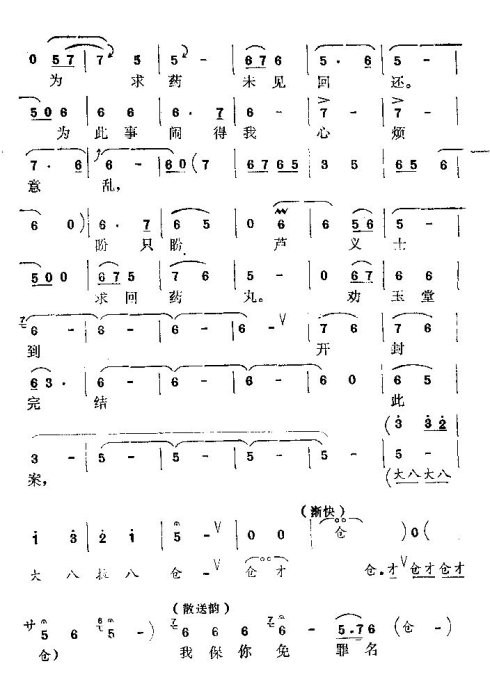 0 5 7 | 7 5 | 5 - | 6 7 6 | 5 . 6 | 5 - |
为 求 药 未 见 回 还。
5 0 6 | 6 6 | 6 . 7 | 6 - | 7 - | 7 - |
为 此 事 闹 得 我 心 烦
7 . 6 | 6 - | 6 0 ( 7 | 6 7 6 5 | 3 5 | 6 5 6 |
意 乱,
6 0 ) | 6 . 7 | 6 5 | 0 6 | 6 5 6 | 5 - |
盼 只 盼 芦 义 士
5 0 0 | 6 7 5 | 7 6 | 5 - | 0 6 7 | 6 5 |
求 回 药 丸。 劝 玉 堂
6 - | 6 - | 6 - | 6 - V | 7 6 | 7 6 |
到 开 封
6 3 . | 6 - | 6 - | 6 - | 6 0 | 6 5 |
完 结 此
( 3 3 2
3 - | 5 - | 5 - | 5 - | 5 - | 5 - |
案, (大八大八
1 3 | 2 1 | 5 - V | 0 0 | 仓 ) 0 (
(渐快)
大 八 拉 八 仓 - 仓 才 仓.才 V 仓才仓才
(散送韵)
サ 5 6 5 - ) 6 6 6 6 - 5 . 7 6 ( 仓 - )
仓) 我 保 你 免 罪 名